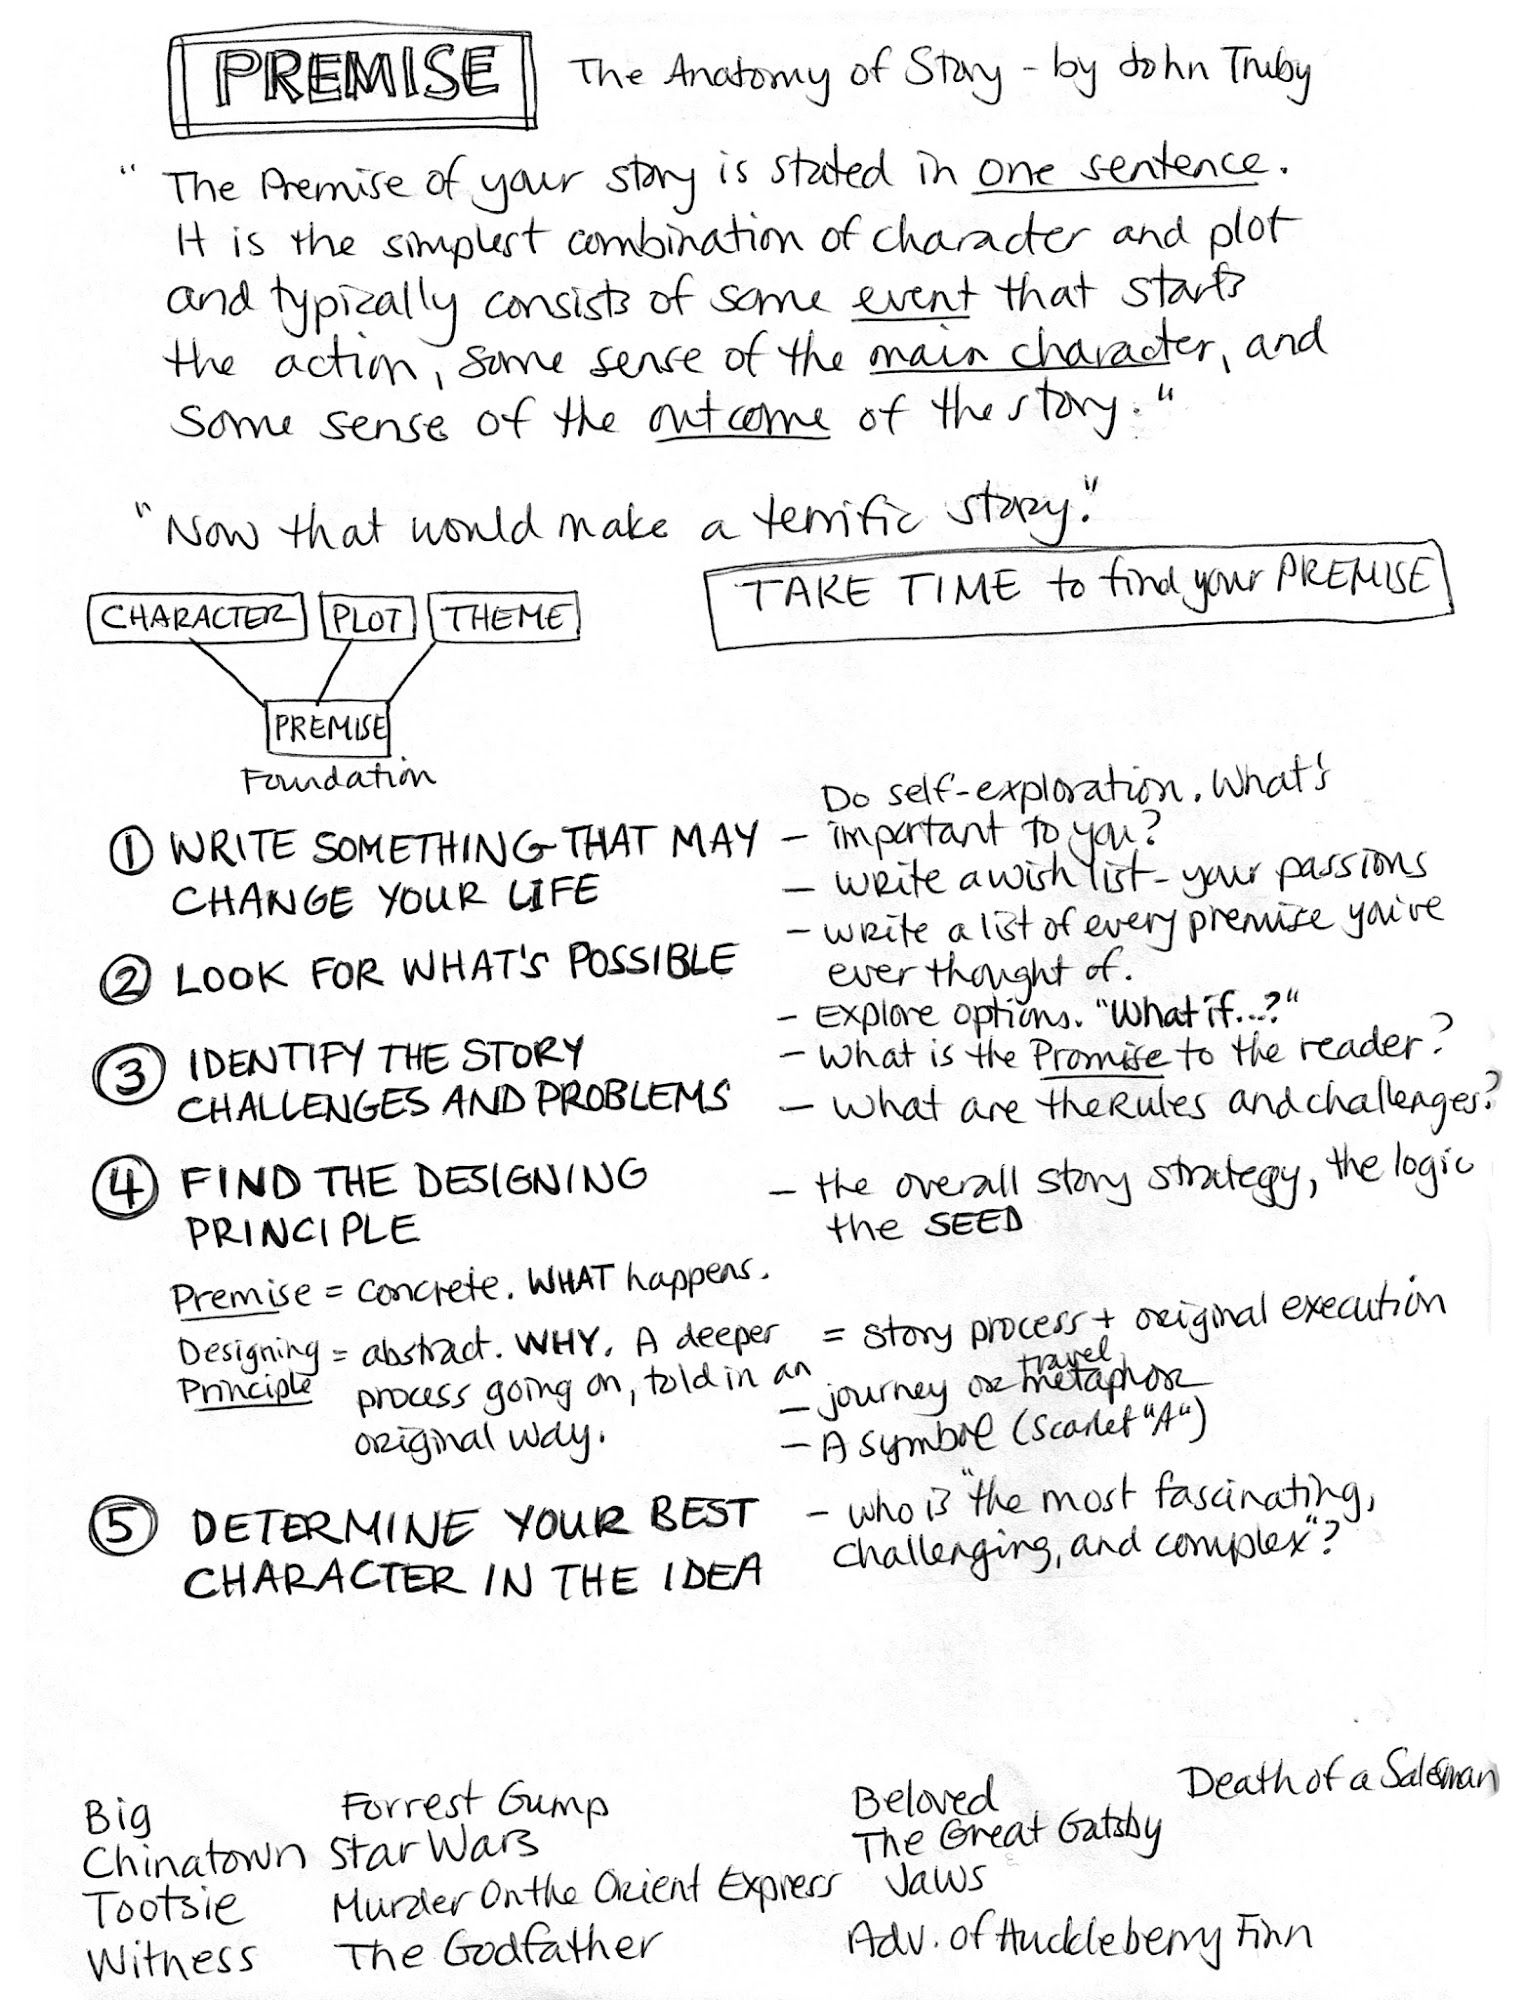 PREMISE The Anatomy of Story - by John Truby
"The Premise of your story is stated in one sentence.
It is the simplest combination of character and plot
and typically consists of some event that starts
the action, some sense of the main character, and
some sense of the outcome of the story."
"Now that would make a terrific story."
TAKE TIME to find your PREMISE
CHARACTER PLOT THEME
PREMISE
Foundation
① WRITE SOMETHING THAT MAY
CHANGE YOUR LIFE
Do self-exploration. What's
- important to you?
- write a wish list - your passions
- write a list of every premise you've
ever thought of.
② LOOK FOR WHAT'S POSSIBLE
- Explore options. "What if...?"
③ IDENTIFY THE STORY
CHALLENGES AND PROBLEMS
- What is the Promise to the reader?
- What are the Rules and challenges?
④ FIND THE DESIGNING
PRINCIPLE
- the overall story strategy, the logic
the SEED
Premise = concrete. WHAT happens.
Designing = abstract. WHY. A deeper
Principle process going on, told in an
original way.
= story process + original execution
travel
- journey or metaphor
- A symbol (Scarlet "A")
⑤ DETERMINE YOUR BEST
CHARACTER IN THE IDEA
- who is "the most fascinating,
challenging, and complex"?
Big
Chinatown
Tootsie
Witness
Forrest Gump
Star Wars
Murder On the Orient Express
The Godfather
Beloved
The Great Gatsby
Jaws
Adv. of Huckleberry Finn
Death of a Salesman